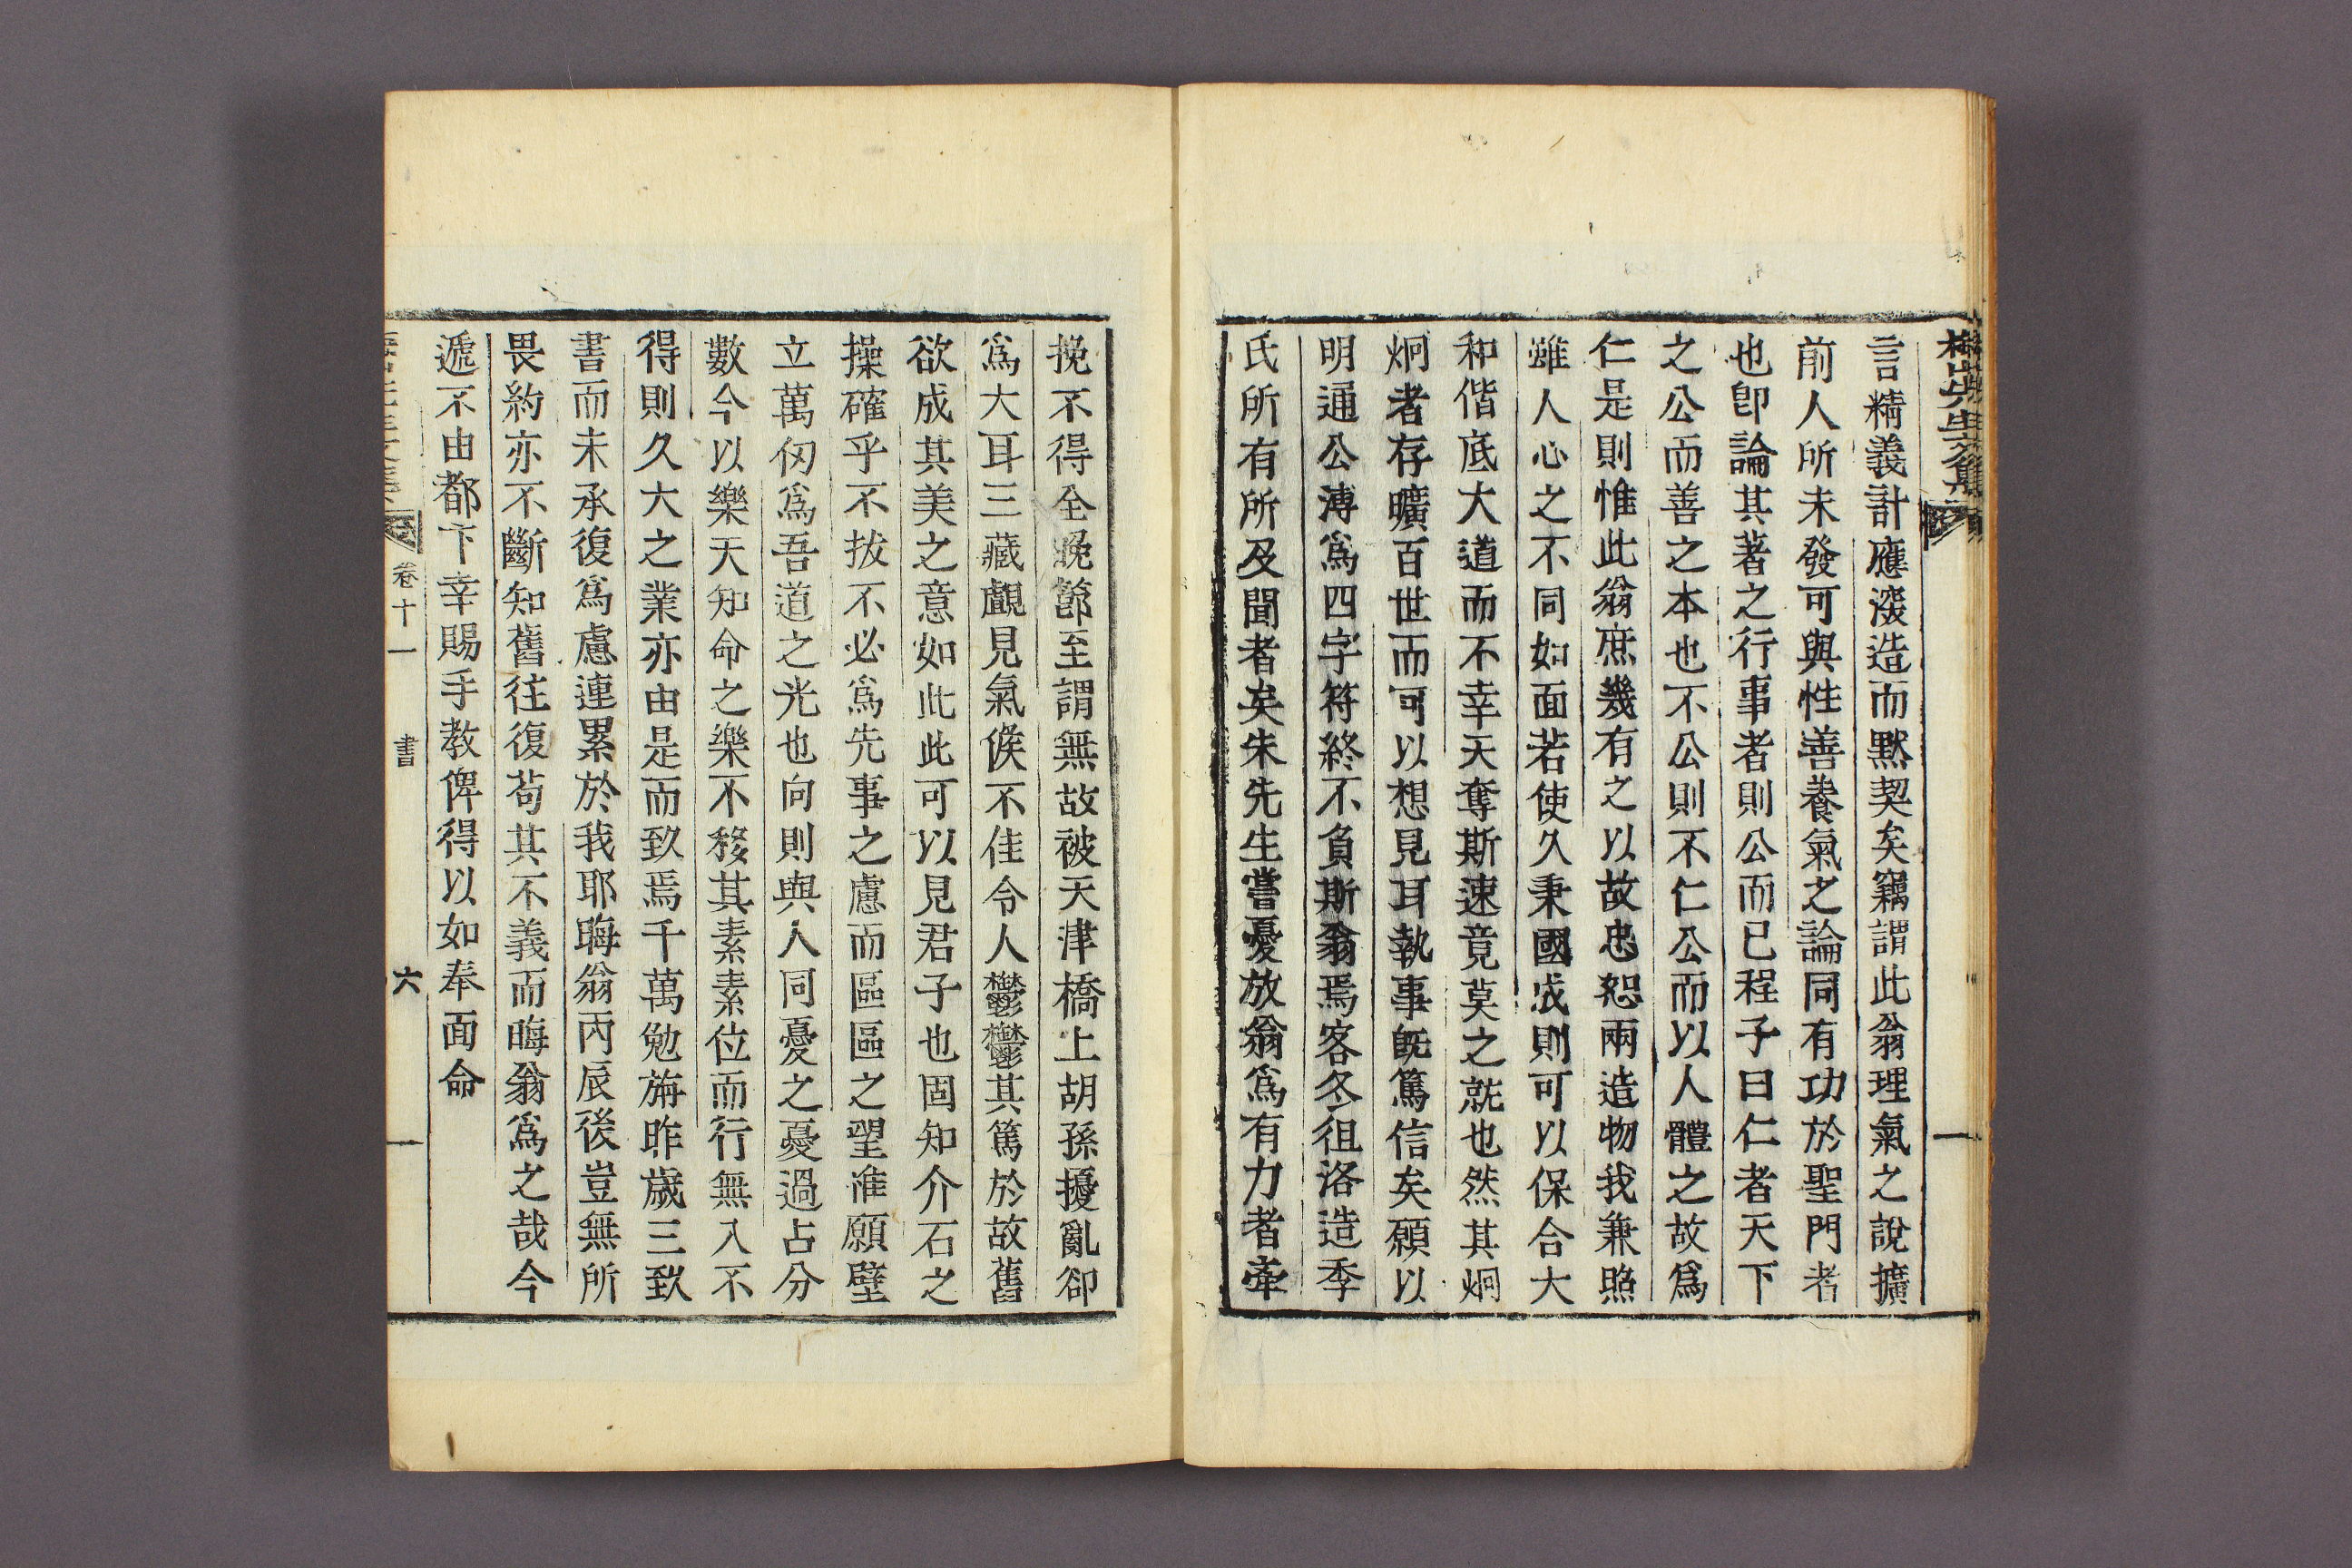 言精義計應深造而默契矣竊謂此翁理氣之說擴
前人所未發可與性善養氣之論同有功於聖門者
也卽論其著之行事者則公而已程子曰仁者天下
之公而善之本也不公則不仁公而以人體之故爲
仁是則惟此翁庶幾有之以故忠恕兩造物我兼照
雖人心之不同如面若使久秉國成則可以保合大
和偕底大道而不幸天奪斯速竟莫之就也然其炯
炯者存曠百世而可以想見耳執事旣篤信矣願以
明通公溥爲四字符終不負斯翁焉客冬徂洛造季
氏所有所及聞者矣朱先生嘗憂放翁爲有力者牽
挽不得全晚節至謂無故被天津橋上胡孫擾亂卻
爲大耳三藏覰見氣候不佳令人鬱鬱其篤於故舊
欲成其美之意如此此可以見君子也固知介石之
操確乎不拔不必爲先事之慮而區區之望准願壁
立萬仞爲吾道之光也向則與人同憂之憂過占分
數今以樂天知命之樂不移其素素位而行無入不
得則久大之業亦由是而致焉千萬勉旃昨歲三致
書而未承復爲慮連累於我耶晦翁丙辰後豈無所
畏約亦不斷知舊往復苟其不義而晦翁爲之哉今
遞不由都下幸賜手教俾得以如奉面命
卷十一 書 六